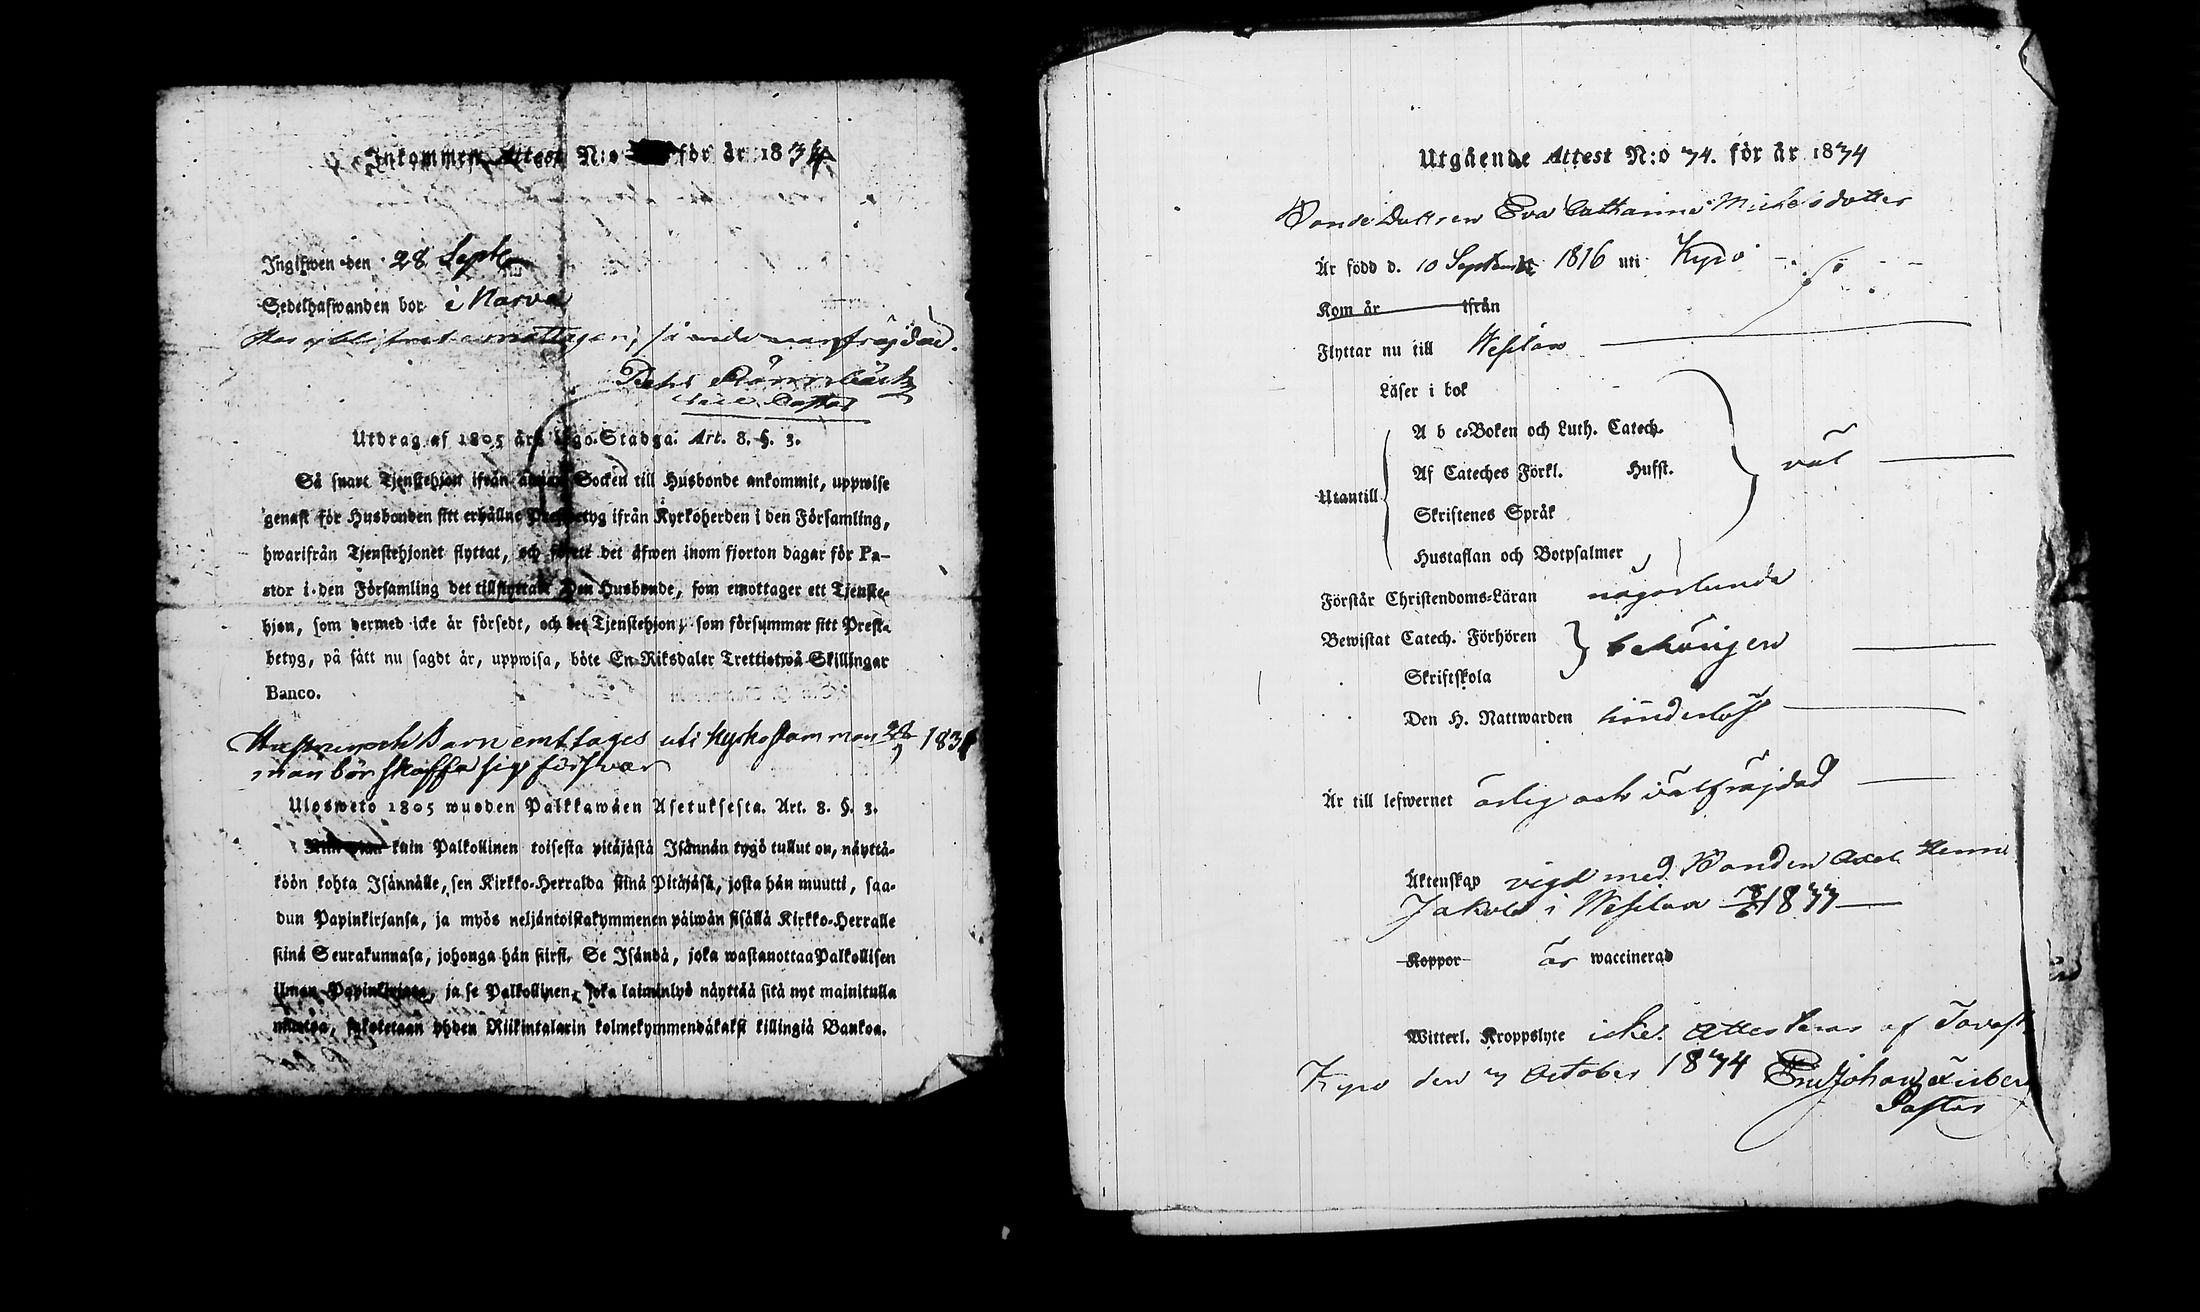 Inkommen Attest N:o för år 1834
Ingifwen den 28 Sept
Sedelhafwanden bor i Narva
Har blifvit
Pehr
Pastor
Utdrag af 1805 års Lego-Stadga. Art. 8. §. 3.
Så snart Tjenstehjon ifrån annan Socken till Husbonde ankommit, uppwise
genast för Husbonden sitt erhållne Prestbetyg ifrån Kyrkoherden i den Församling,
hwarifrån Tjenstehjonet flyttat, och förete det äfwen inom fjorton dagar för Pa-
stor i den Församling det tillflyttadt. Den Husbonde, som emottager ett Tjenste-
hjon, som dermed icke är försedt, och det Tjenstehjon, som försummar sitt Prest-
betyg, på sätt nu sagdt är, uppwisa, böte En Riksdaler Trettiotwå Skillingar
Banco.
Hustrun och Barn emttages uti kyrkostamman 28/9 1834
man bör skaffa sig försvar
Ulosweto 1805 wuoden Palkkawäen Asetuksesta. Art. 8. §. 3.
kuin Palkollinen toisesta pitäjästä Isännän tygö tullut on, näyttä-
köön kohta Isännälle, sen Kirkko-Herralda siinä Pitäjäsä, josta hän muutti, saa-
dun Papinkirjansa, ja myös neljäntoistakymmenen päiwän sisällä Kirkko-Herralle
siinä Seurakunnasa, johonga hän siirsi. Se Isändä, joka wastanottaa Palkollisen
ilman Papinkirjata, ja se Palkollinen, joka laiminlyö näyttää sitä nyt mainitulla
muotoa, sakotetaan yhden Riikintalarin kolmekymmendäkaksi killingiä Bankoa.
Utgående Attest N:o 74. för år 1834
Bonde Dottren Eva Catharina Michelsdotter
Är född d. 10 September 1816 uti Kyro
Kom år ifrån
Flyttar nu till Wesilax
Läser i bok
A b c-Boken och Luth. Catech.
Af Cateches Förkl. Husft. väl
Utantill
Skriftenes Språk
Hustaflan och Botpsalmer
Förstår Christendoms-Läran någorlunda
Bewistat Catech. Förhören behörigen
Skriftskola
Den H. Nattwarden hinderlös
Är till lefwernet ärlig och välfräjdad
Äktenskap vigd med Bonden Axel Henric
Jakob i Wesilax 1833
Koppor är waccinerad
Witterl. Kroppslyte icke. Attesteras af Tavast
Kyro den 3 October 1834 Johan
Pastor